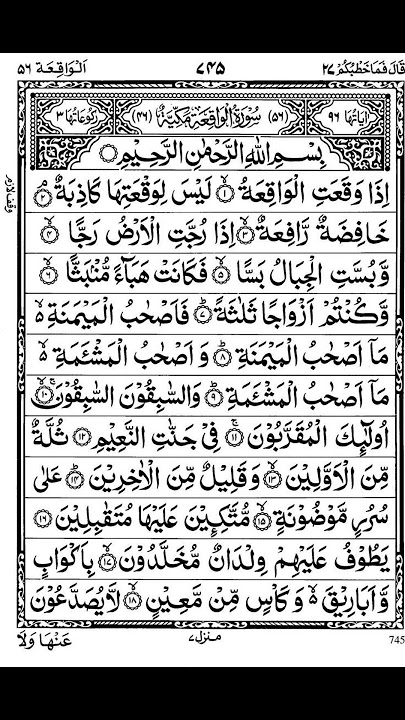 قَالَ فَمَا خَطْبُكُمْ ٢٧ ٧٤٥ اَلْوَاقِعَة ٥٦
اٰيَاتُهَا ٩٦ (٥٦) سُوْرَةُ الْوَاقِعَةِ مَكِّيَّةٌ (٤٦) رُكُوْعَاتُهَا ٣
بِسْمِ اللهِ الرَّحْمٰنِ الرَّحِيْمِ
اِذَا وَقَعَتِ الْوَاقِعَةُ ۙ١ لَيْسَ لِوَقْعَتِهَا كَاذِبَةٌ ۘ٢
وقف لازم
خَافِضَةٌ رَّافِعَةٌ ۙ٣ اِذَا رُجَّتِ الْاَرْضُ رَجًّا ۙ٤
وَّبُسَّتِ الْجِبَالُ بَسًّا ۙ٥ فَكَانَتْ هَبَآءً مُّنْۢبَثًّا ۙ٦
وَّكُنْتُمْ اَزْوَاجًا ثَلٰثَةً ؕ٧ فَاَصْحٰبُ الْمَيْمَنَةِ ۙ۬
مَاۤ اَصْحٰبُ الْمَيْمَنَةِ ؕ٨ وَ اَصْحٰبُ الْمَشْئَمَةِ ۙ۬
مَاۤ اَصْحٰبُ الْمَشْئَمَةِ ؕ٩ وَالسّٰبِقُوْنَ السّٰبِقُوْنَ ۚۙ١٠
اُولٰٓئِكَ الْمُقَرَّبُوْنَ ۚ١١ فِيْ جَنّٰتِ النَّعِيْمِ ١٢ ثُلَّةٌ
مِّنَ الْاَوَّلِيْنَ ۙ١٣ وَقَلِيْلٌ مِّنَ الْاٰخِرِيْنَ ؕ١٤ عَلٰى
سُرُرٍ مَّوْضُوْنَةٍ ۙ١٥ مُّتَّكِـِٕيْنَ عَلَيْهَا مُتَقٰبِلِيْنَ ١٦
يَطُوْفُ عَلَيْهِمْ وِلْدَانٌ مُّخَلَّدُوْنَ ۙ١٧ بِاَكْوَابٍ
وَّاَبَارِيْقَ ۙ۬ وَكَاْسٍ مِّنْ مَّعِيْنٍ ۙ١٨ لَّا يُصَدَّعُوْنَ
745 منزل ٧ عَنْهَا وَلَا